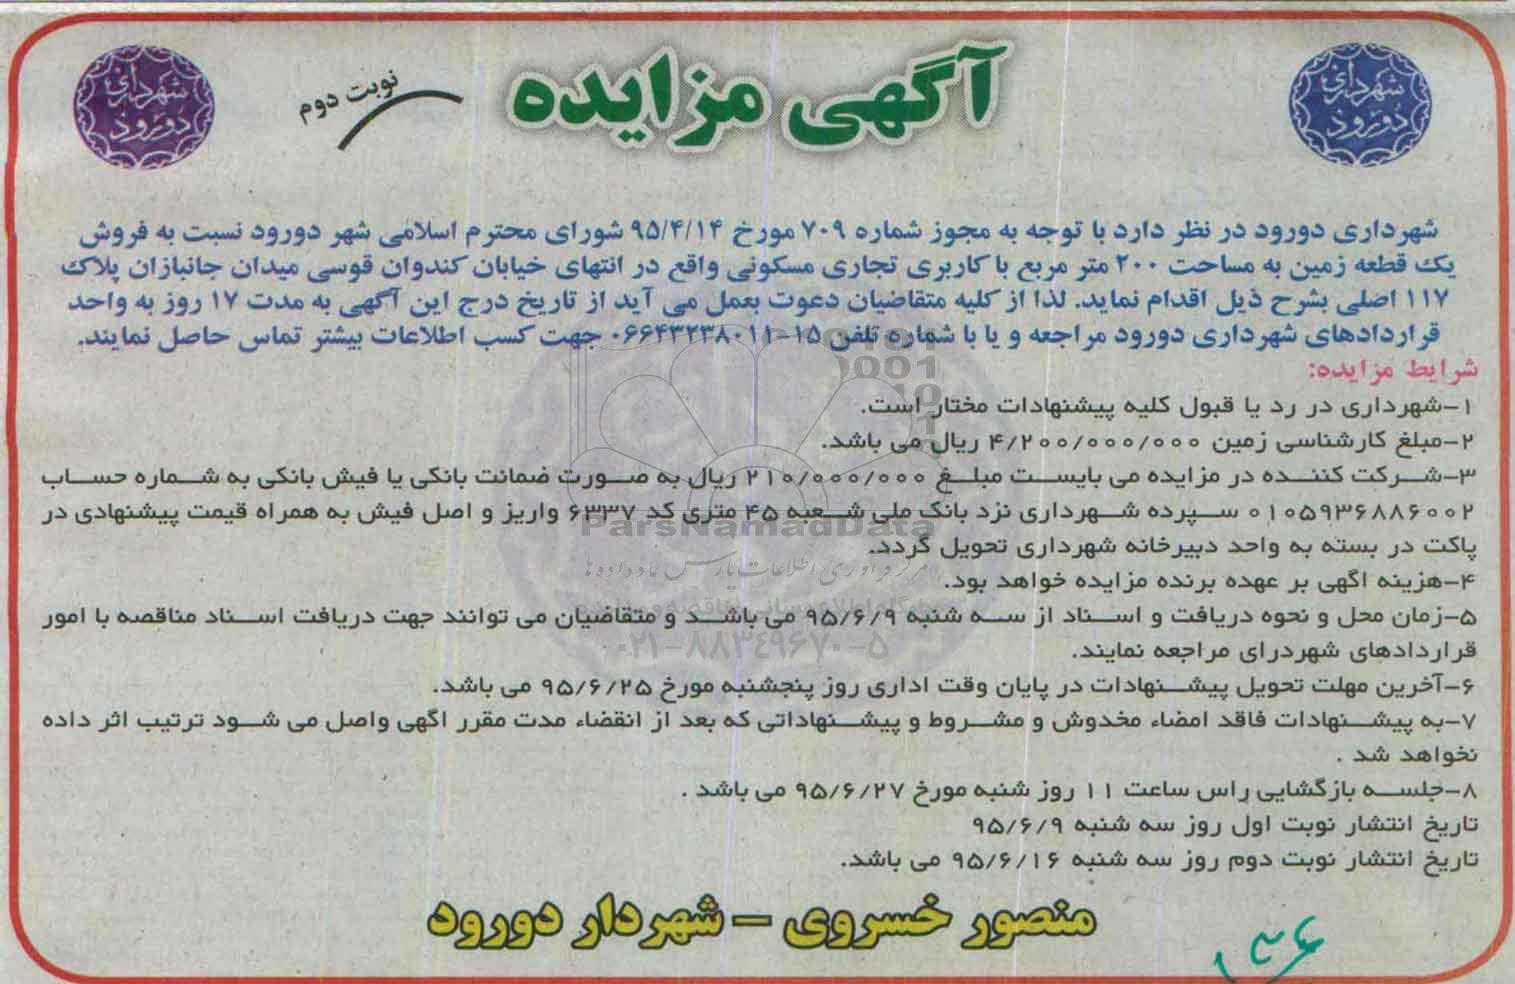 شهرداری دورود
آگهی مزایده
نوبت دوم
شهرداری دورود
شهرداری دورود در نظر دارد با توجه به مجوز شماره ۷۰۹ مورخ ۹۵/۴/۱۴ شورای محترم اسلامی شهر دورود نسبت به فروش
یک قطعه زمین به مساحت ۲۰۰ متر مربع با کاربری تجاری مسکونی واقع در انتهای خیابان کندوان قوسی میدان جانبازان پلاک
۱۱۷ اصلی بشرح ذیل اقدام نماید. لذا از کلیه متقاضیان دعوت بعمل می آید از تاریخ درج این آگهی به مدت ۱۷ روز به واحد
قراردادهای شهرداری دورود مراجعه و یا با شماره تلفن ۱۵-۰۶۶۴۳۲۳۸۰۱۱ جهت کسب اطلاعات بیشتر تماس حاصل نمایند.
شرایط مزایده:
۱-شهرداری در رد یا قبول کلیه پیشنهادات مختار است.
۲-مبلغ کارشناسی زمین ۴/۲۰۰/۰۰۰/۰۰۰ ریال می باشد.
۳-شرکت کننده در مزایده می بایست مبلغ ۲۱۰/۰۰۰/۰۰۰ ریال به صورت ضمانت بانکی یا فیش بانکی به شماره حساب
۰۱۰۵۹۳۶۸۸۶۰۰۲ سپرده شهرداری نزد بانک ملی شعبه ۴۵ متری کد ۶۳۳۷ واریز و اصل فیش به همراه قیمت پیشنهادی در
پاکت در بسته به واحد دبیرخانه شهرداری تحویل گردد.
۴-هزینه اگهی بر عهده برنده مزایده خواهد بود.
۵-زمان محل و نحوه دریافت و اسناد از سه شنبه ۹۵/۶/۹ می باشد و متقاضیان می توانند جهت دریافت اسناد مناقصه با امور
قراردادهای شهردرای مراجعه نمایند.
۶-آخرین مهلت تحویل پیشنهادات در پایان وقت اداری روز پنجشنبه مورخ ۹۵/۶/۲۵ می باشد.
۷-به پیشنهادات فاقد امضاء مخدوش و مشروط و پیشنهاداتی که بعد از انقضاء مدت مقرر اگهی واصل می شود ترتیب اثر داده
نخواهد شد .
۸-جلسه بازگشایی راس ساعت ۱۱ روز شنبه مورخ ۹۵/۶/۲۷ می باشد .
تاریخ انتشار نوبت اول روز سه شنبه ۹۵/۶/۹
تاریخ انتشار نوبت دوم روز سه شنبه ۹۵/۶/۱۶ می باشد.
منصور خسروی – شهردار دورود
ParsNamadData
مرکز فرآوری اطلاعات پارس نماد داده ها
۰۲۱-۸۸۳۴۹۶۷۰-۵